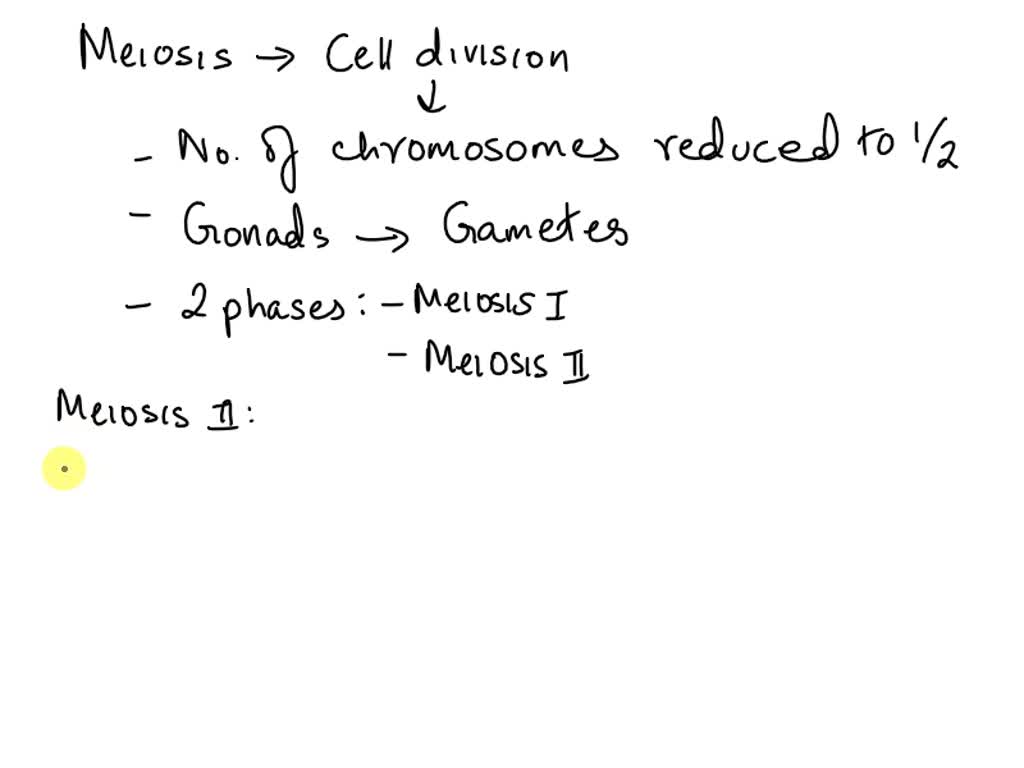 Meiosis → Cell division
↓
- No. of chromosomes reduced to 1/2
- Gonads → Gametes
- 2 phases: - Meiosis I
- Meiosis II
Meiosis II: